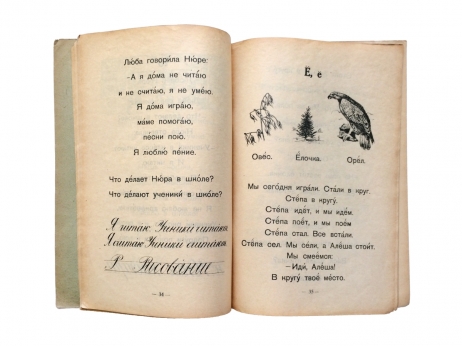 Лю́ба говори́ла Ню́ре:
—А я до́ма не чита́ю
и не счита́ю, я не уме́ю.
Я до́ма игра́ю,
ма́ме помога́ю,
пе́сни пою́.
Я люблю́ пе́ние.
Что де́лает Ню́ра в шко́ле?
Что де́лают ученики́ в шко́ле?
Я читаю. Ученики читают.
Я считаю. Ученики считают.
Р Рисование
Ё, е
Овёс. Ёлочка. Орёл.
Мы сего́дня игра́ли. Ста́ли в круг.
Стёпа в кругу́.
Стёпа идёт, и мы идём.
Стёпа поёт, и мы поём.
Стёпа стал. Все вста́ли.
Стёпа сел. Мы се́ли, а Алёша стои́т.
Мы смеёмся:
—Иди́, Алёша!
В кругу́ твоё ме́сто.